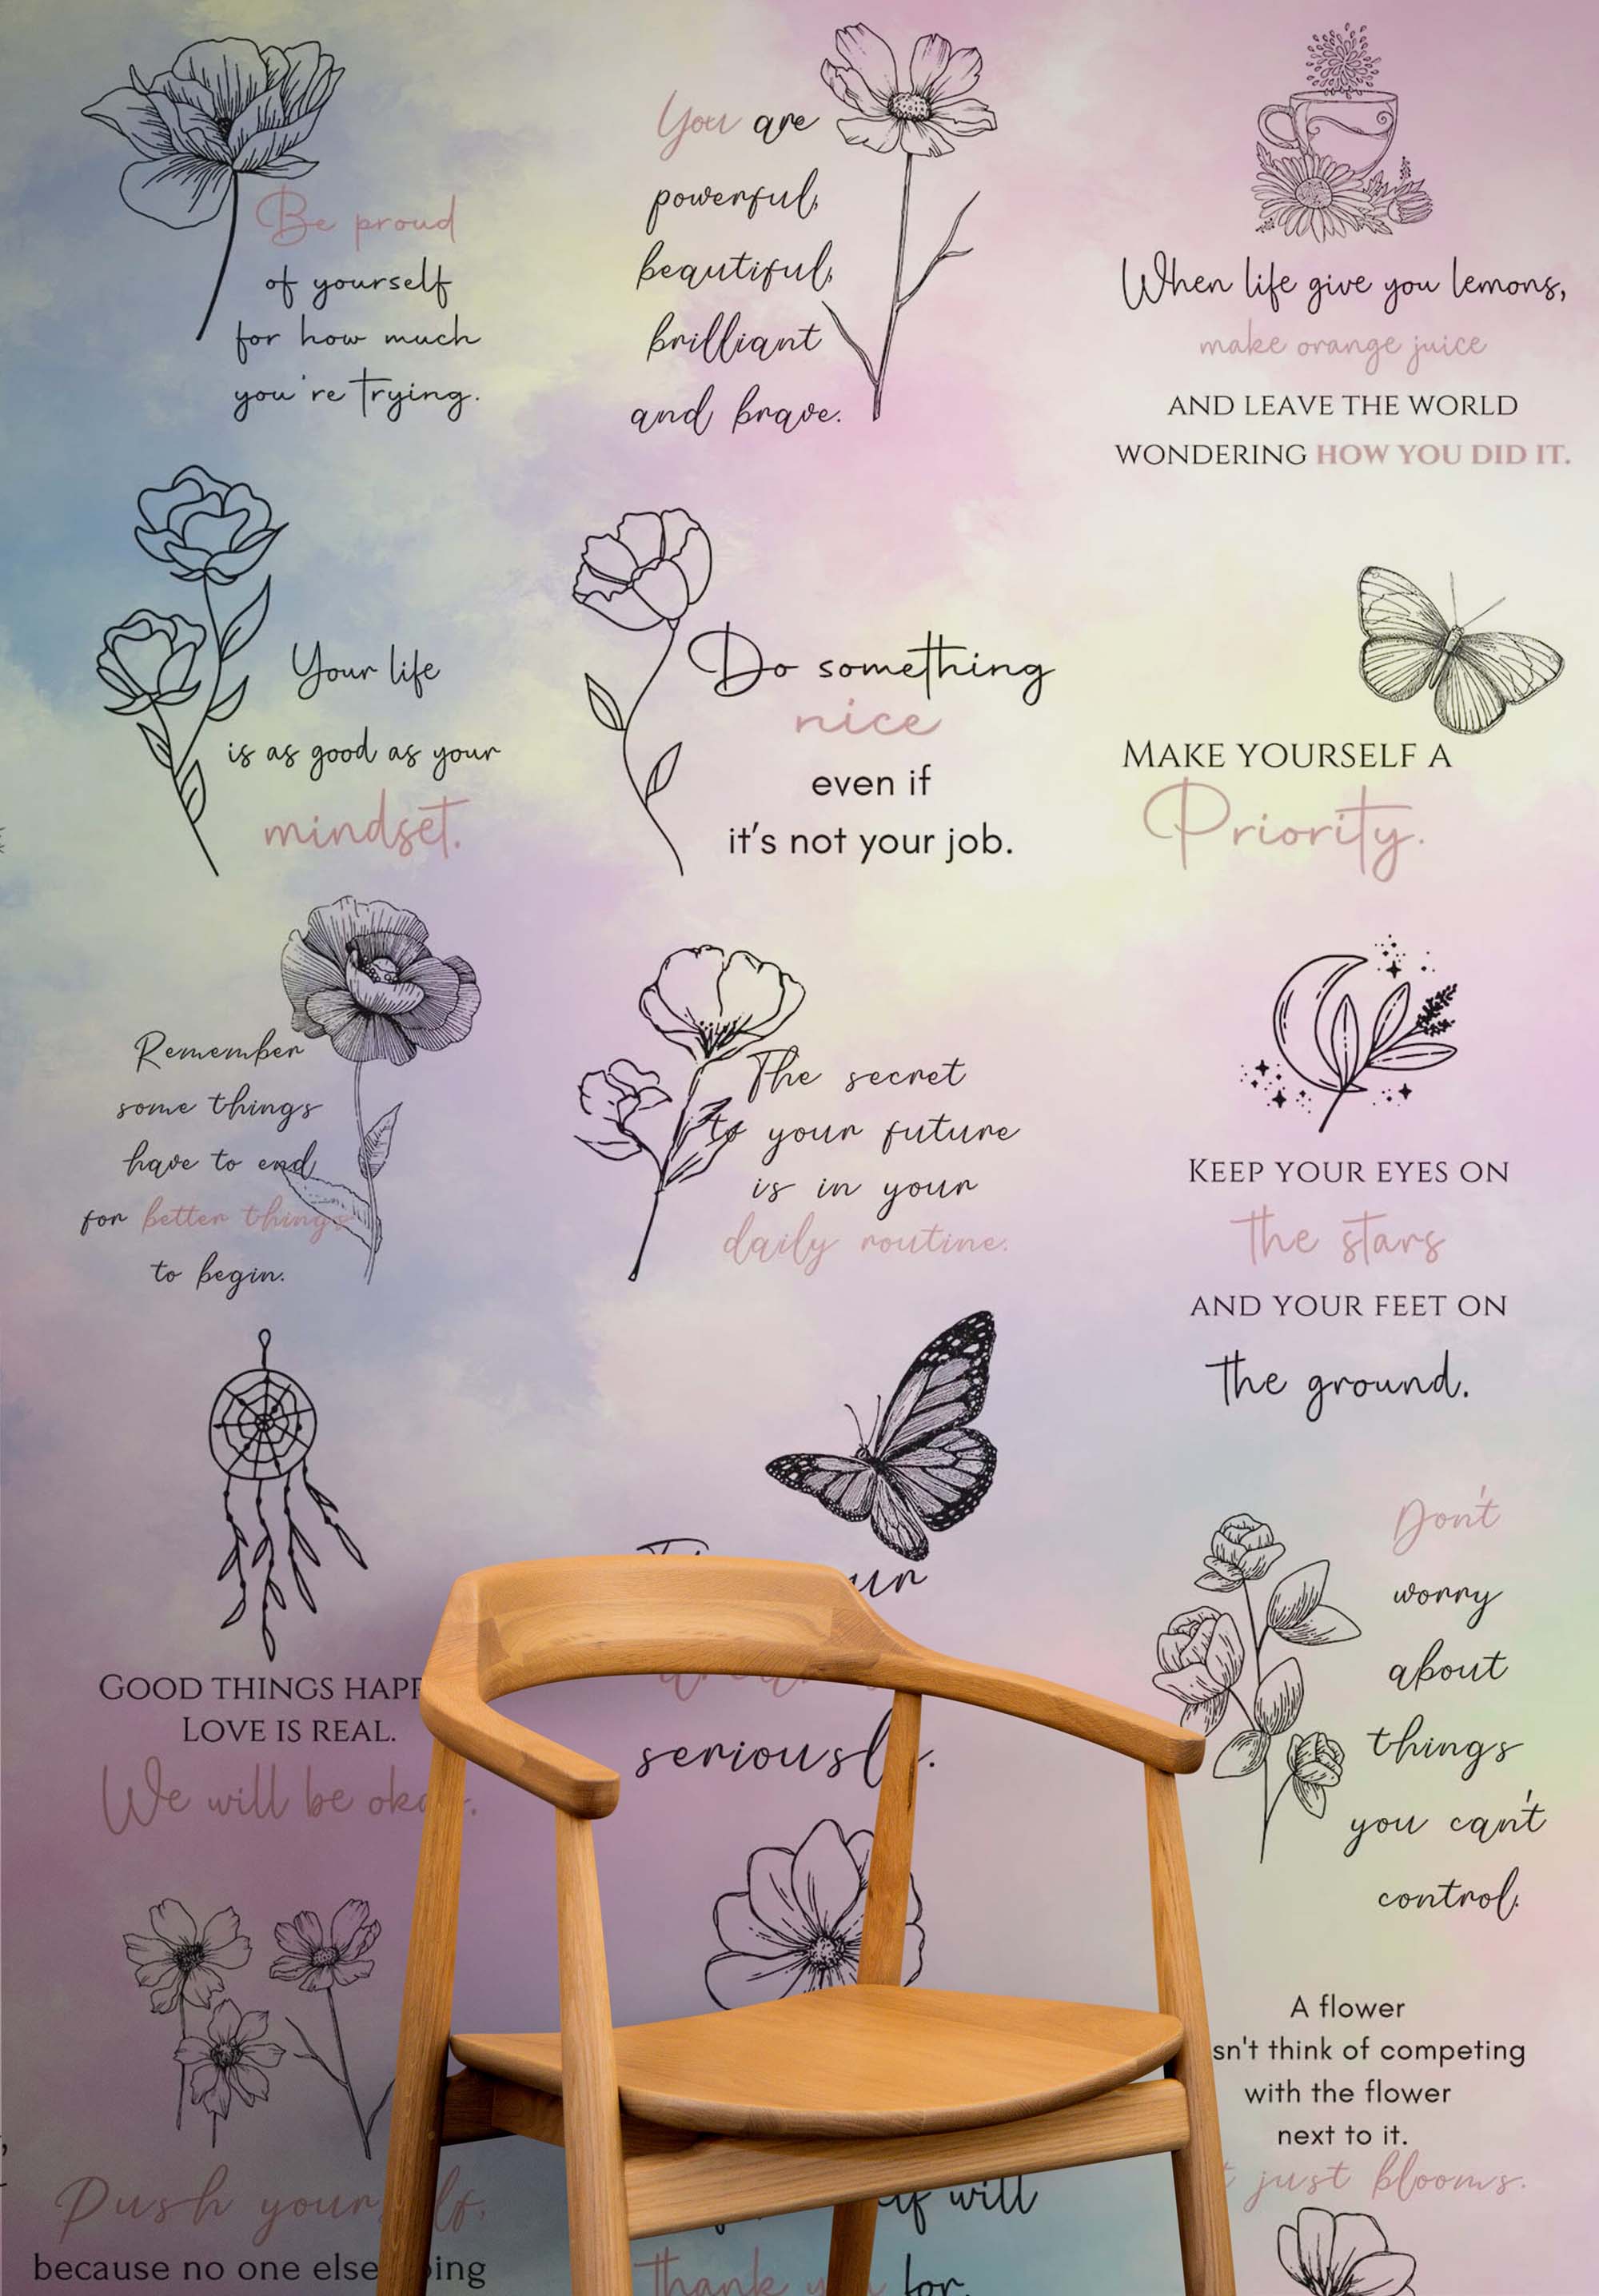 Be proud
of yourself
for how much
you're trying.
You are
powerful,
beautiful,
brilliant
and brave.
When life give you lemons,
make orange juice
AND LEAVE THE WORLD
WONDERING HOW YOU DID IT.
Your life
is as good as your
mindset.
Do something
nice
even if
it's not your job.
MAKE YOURSELF A
Priority.
Remember
some things
have to end
for better things
to begin.
The secret
to your future
is in your
daily routine.
KEEP YOUR EYES ON
the stars
AND YOUR FEET ON
the ground.
GOOD THINGS
LOVE IS REAL.
We will be
seriously.
Don't
worry
about
things
you can't
control.
A flower
think of competing
with the flower
next to it.
just blooms.
Push
because no one else
will
thank for